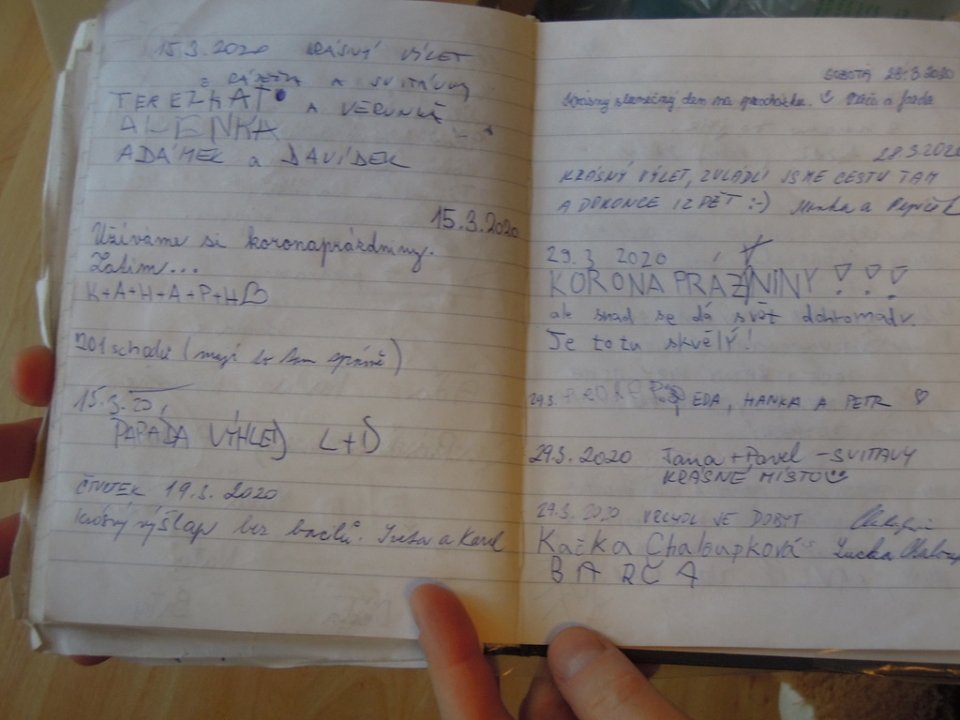 15.3.2020 KRÁSNÝ VÝLET
Z A SVITAVY
TEREZKA A VERUNKA
ALENKA
ADÁMEK a DAVÍDEK
15.3.2020
Užíváme si koronaprázdniny.
Zatím...
K+A+H+A+P+H
201 schodů (mají to tam správně)
15.3.20,
PARÁDA VÝHLED L+D
ČTVRTEK 19.3. 2020
Krásný výšlap bez bacilů. a Karel
SOBOTA 28.3.2020
Krásný slunečný den na procházku. ☺ a
28.3.2020
KRÁSNÝ VÝLET, ZVLÁDLI JSME CESTU TAM
A DOKONCE I ZPĚT :-) a
29.3 2020
KORONA PRÁZNINY !!!
ale snad se dá svět dohromady.
Je to tu skvělý!
29.3. EDA, HANKA A PETR ♡
29.3.2020 Jana + Pavel - SVITAVY
KRÁSNÉ MÍSTO☺
29.3.2020 VRCHOL JE DOBYT
Kačka Chaloupková Lucka
BARČA